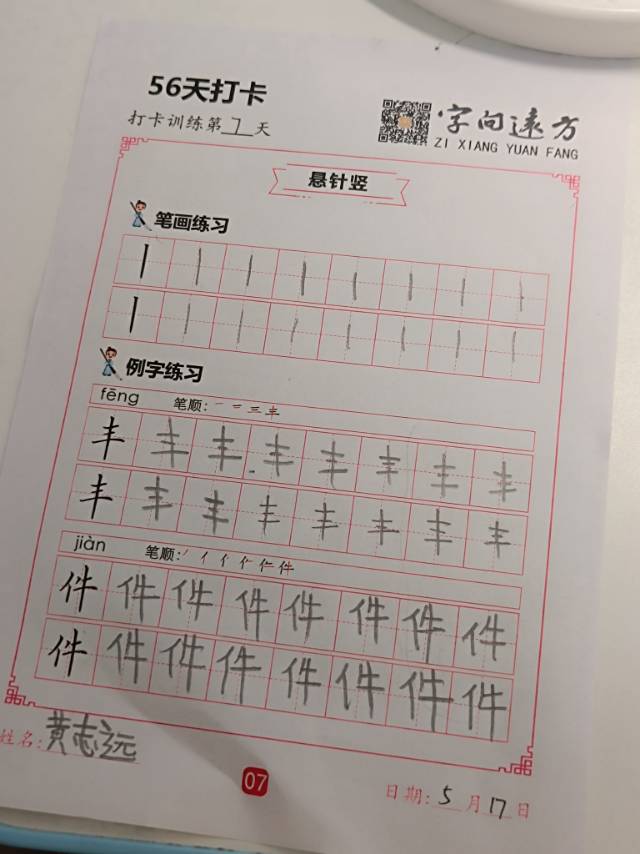 56天打卡
打卡训练第7天
字向远方
ZI XIANG YUAN FANG
悬针竖
笔画练习
例字练习
fēng 笔顺: 一 二 三 丰
丰 丰 丰 丰 丰 丰 丰 丰
丰 丰 丰 丰 丰 丰 丰 丰
jiàn 笔顺: 丿 亻 亻 仁 件
件 件 件 件 件 件 件 件
件 件 件 件 件 件 件 件
姓名: 黄志远
07
日期: 5月17日